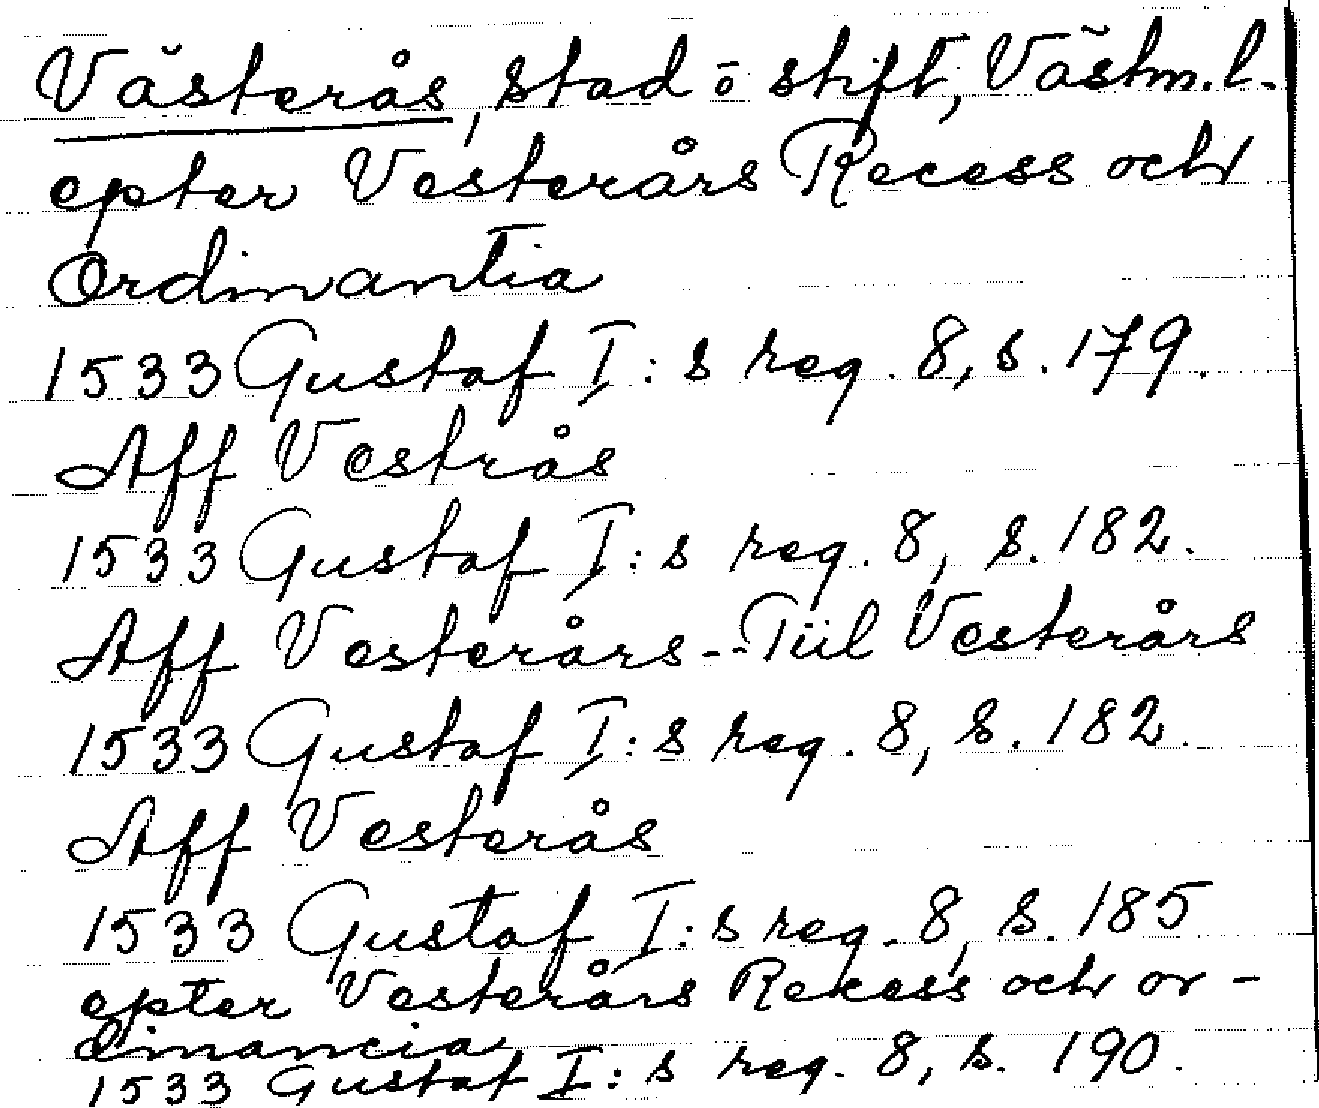 Västerås, stad o stift, Västm. l.
epter Vesterårs Recess och
Ordinantia
1533 Gustaf I:s reg. 8, s. 179.
Aff Vestrås
1533 Gustaf I:s reg. 8, s. 182.
Aff Vesterårs -- Tiil Vesterårs
1533 Gustaf I:s reg. 8, s. 182.
Aff Vesterås
1533 Gustaf I:s reg. 8, s. 185
epter Vesterårs Rekess och or-
dinancia
1533 Gustaf I:s reg. 8, s. 190.